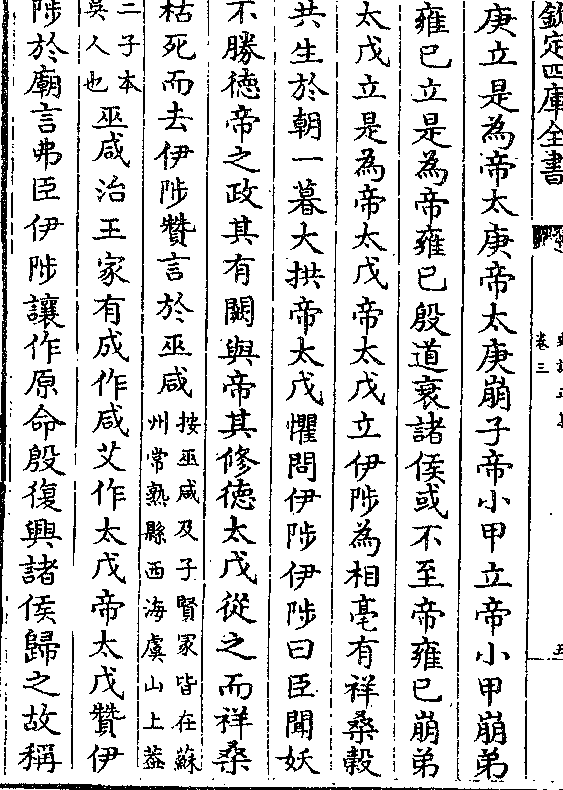 欽定四庫全書
卷三
庚立是為帝太庚帝太庚崩子帝小甲立帝小甲崩弟
雍已立是為帝雍已殷道衰諸侯或不至帝雍已崩弟
太戊立是為帝太戊帝太戊立伊陟為相亳有祥桑榖
共生於朝一暮大拱帝太戊懼問伊陟伊陟曰臣聞妖
不勝德帝之政其有闕與帝其修德太戊從之而祥桑
枯死而去伊陟贊言於巫咸按巫咸及子賢冢皆在蘇
州常熟縣西海虞山上葢
二子本
吳人也巫咸治王家有成作咸艾作太戊帝太戊贊伊
陟於廟言弗臣伊陟讓作原命殷復興諸侯歸之故稱